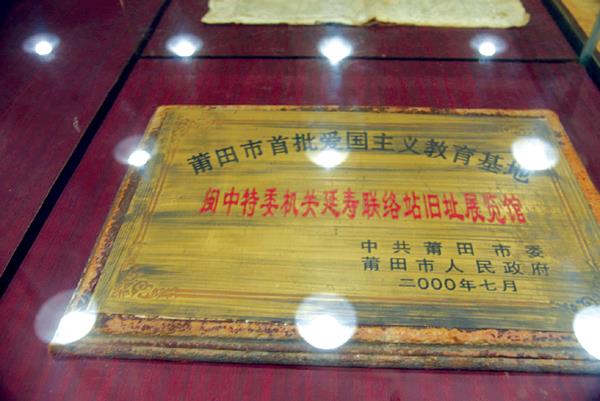 莆田市首批爱国主义教育基地
闽中特委机关延寿联络站旧址展览馆
中共莆田市委
莆田市人民政府
二000年七月